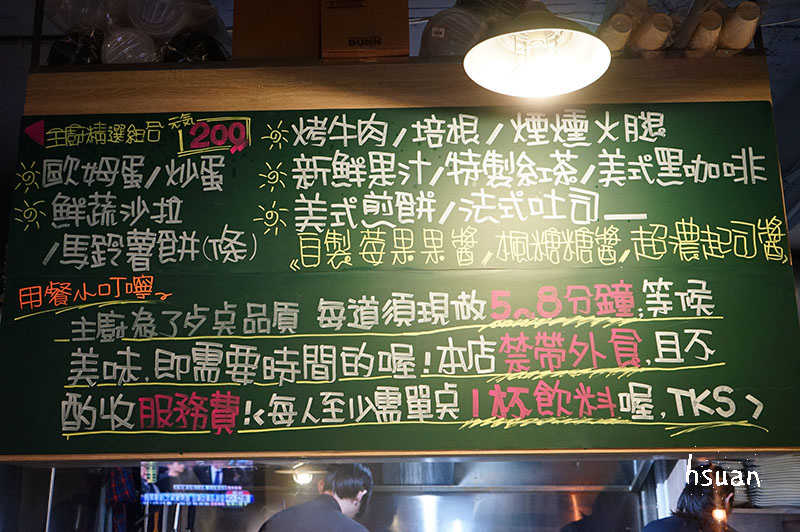 BUNN
主廚精選組合 元氣 200
歐姆蛋/炒蛋
鮮蔬沙拉
/馬鈴薯餅(條)
烤牛肉/培根/煙燻火腿
新鮮果汁/特製紅茶/美式黑咖啡
美式煎餅/法式吐司
《自製莓果果醬,楓糖糖醬,超濃起司醬》
用餐小叮嚀~
主廚為了歺点品質 每道須現做5~8分鐘;等候
美味,即需要時間的喔!本店禁帶外食,且不
酌收服務費!<每人至少需單点1杯飲料喔,TKS>
hsuan